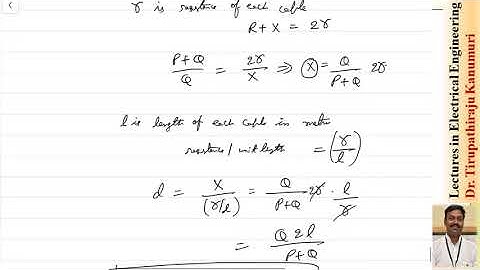 r is resistance of each cable
R + X = 2r
P+Q / Q = 2r / X ⇒ X = Q / P+Q 2r
l is length of each cable in metres
resistance / unit length = (r/l)
d = X / (r/l) = Q / P+Q 2r · l / r
= Q 2l / P+Q
Lectures in Electrical Engineering
Dr. Tirupathiraju Kanumuri